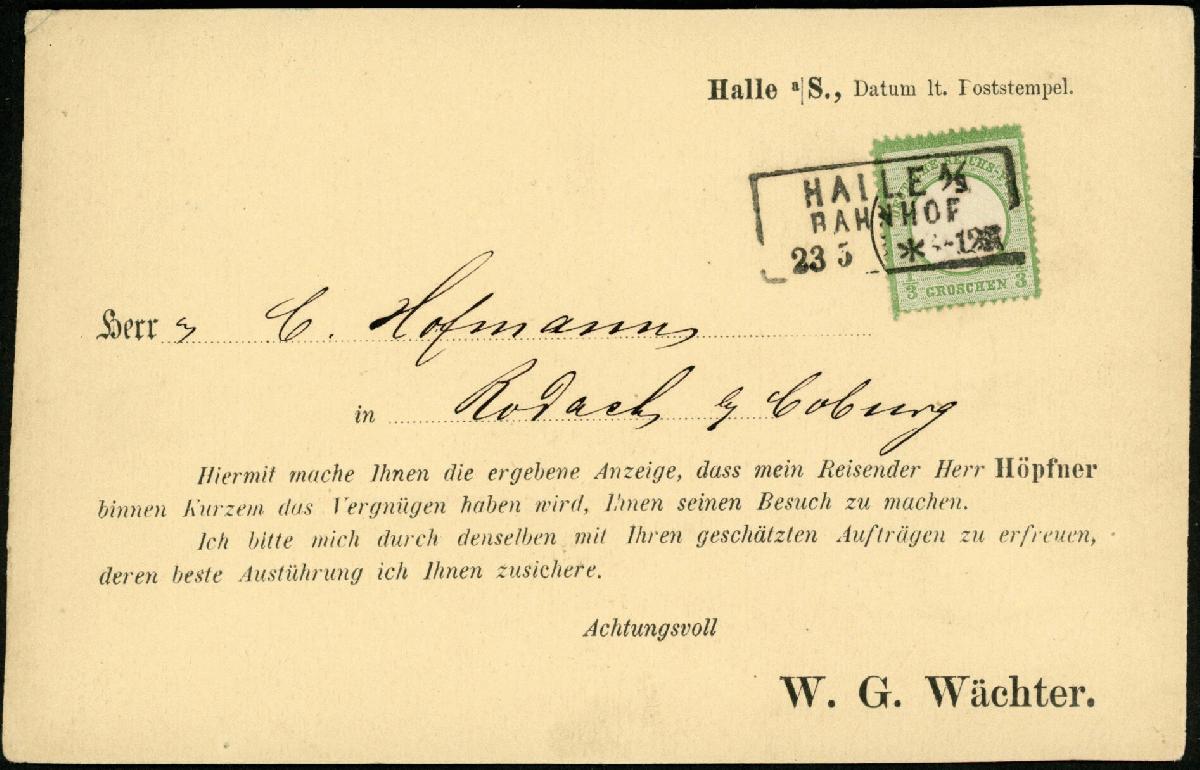 Halle a|S., Datum lt. Poststempel.
DEUTSCHE REICHS-P
HALLE A/S
BAHNHOF
23 5 * -12
1/3 GROSCHEN 1/3
Herr C. Hofmann
in Rodach b/ Coburg
Hiermit mache Ihnen die ergebene Anzeige, dass mein Reisender Herr Höpfner
binnen Kurzem das Vergnügen haben wird, Ihnen seinen Besuch zu machen.
Ich bitte mich durch denselben mit Ihren geschätzten Aufträgen zu erfreuen,
deren beste Ausführung ich Ihnen zusichere.
Achtungsvoll
W. G. Wächter.